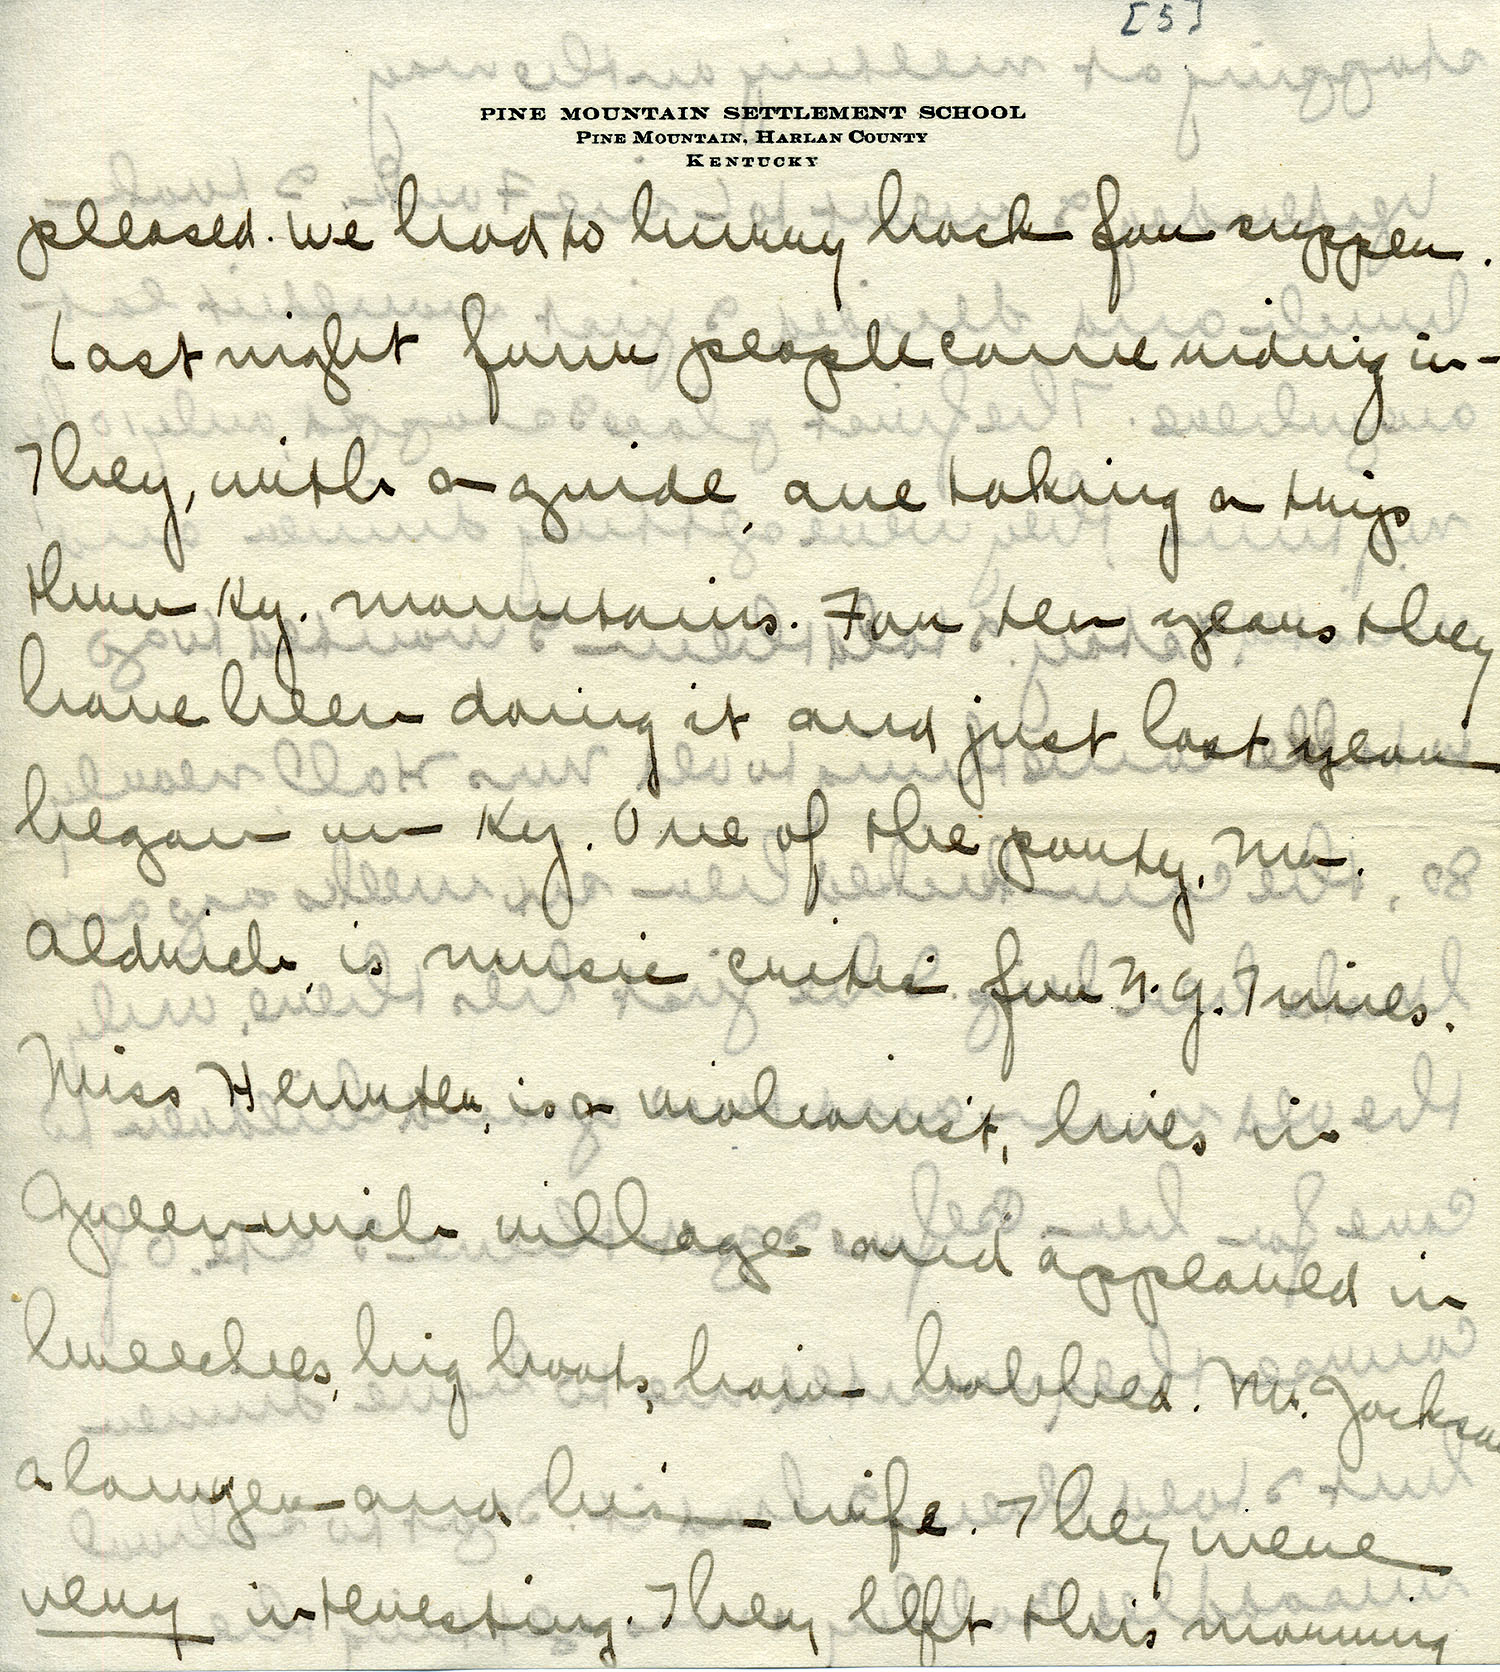 [5]
PINE MOUNTAIN SETTLEMENT SCHOOL
PINE MOUNTAIN, HARLAN COUNTY
KENTUCKY
pleased. We had to hurry back for supper.
Last night four people came riding in –
They, with a guide, are taking a trip
thru Ky. mountains. For ten years they
have been doing it and just last year
began in Ky. One of the party, Mr.
Aldrich, is music critic for N.Y. Times.
Miss Hunter, is a violinist, lives in
Greenwich village and appeared in
breeches, big boots, hair bobbed. Mr. Jackson
a lawyer and his wife. They were
very interesting. They left this morning